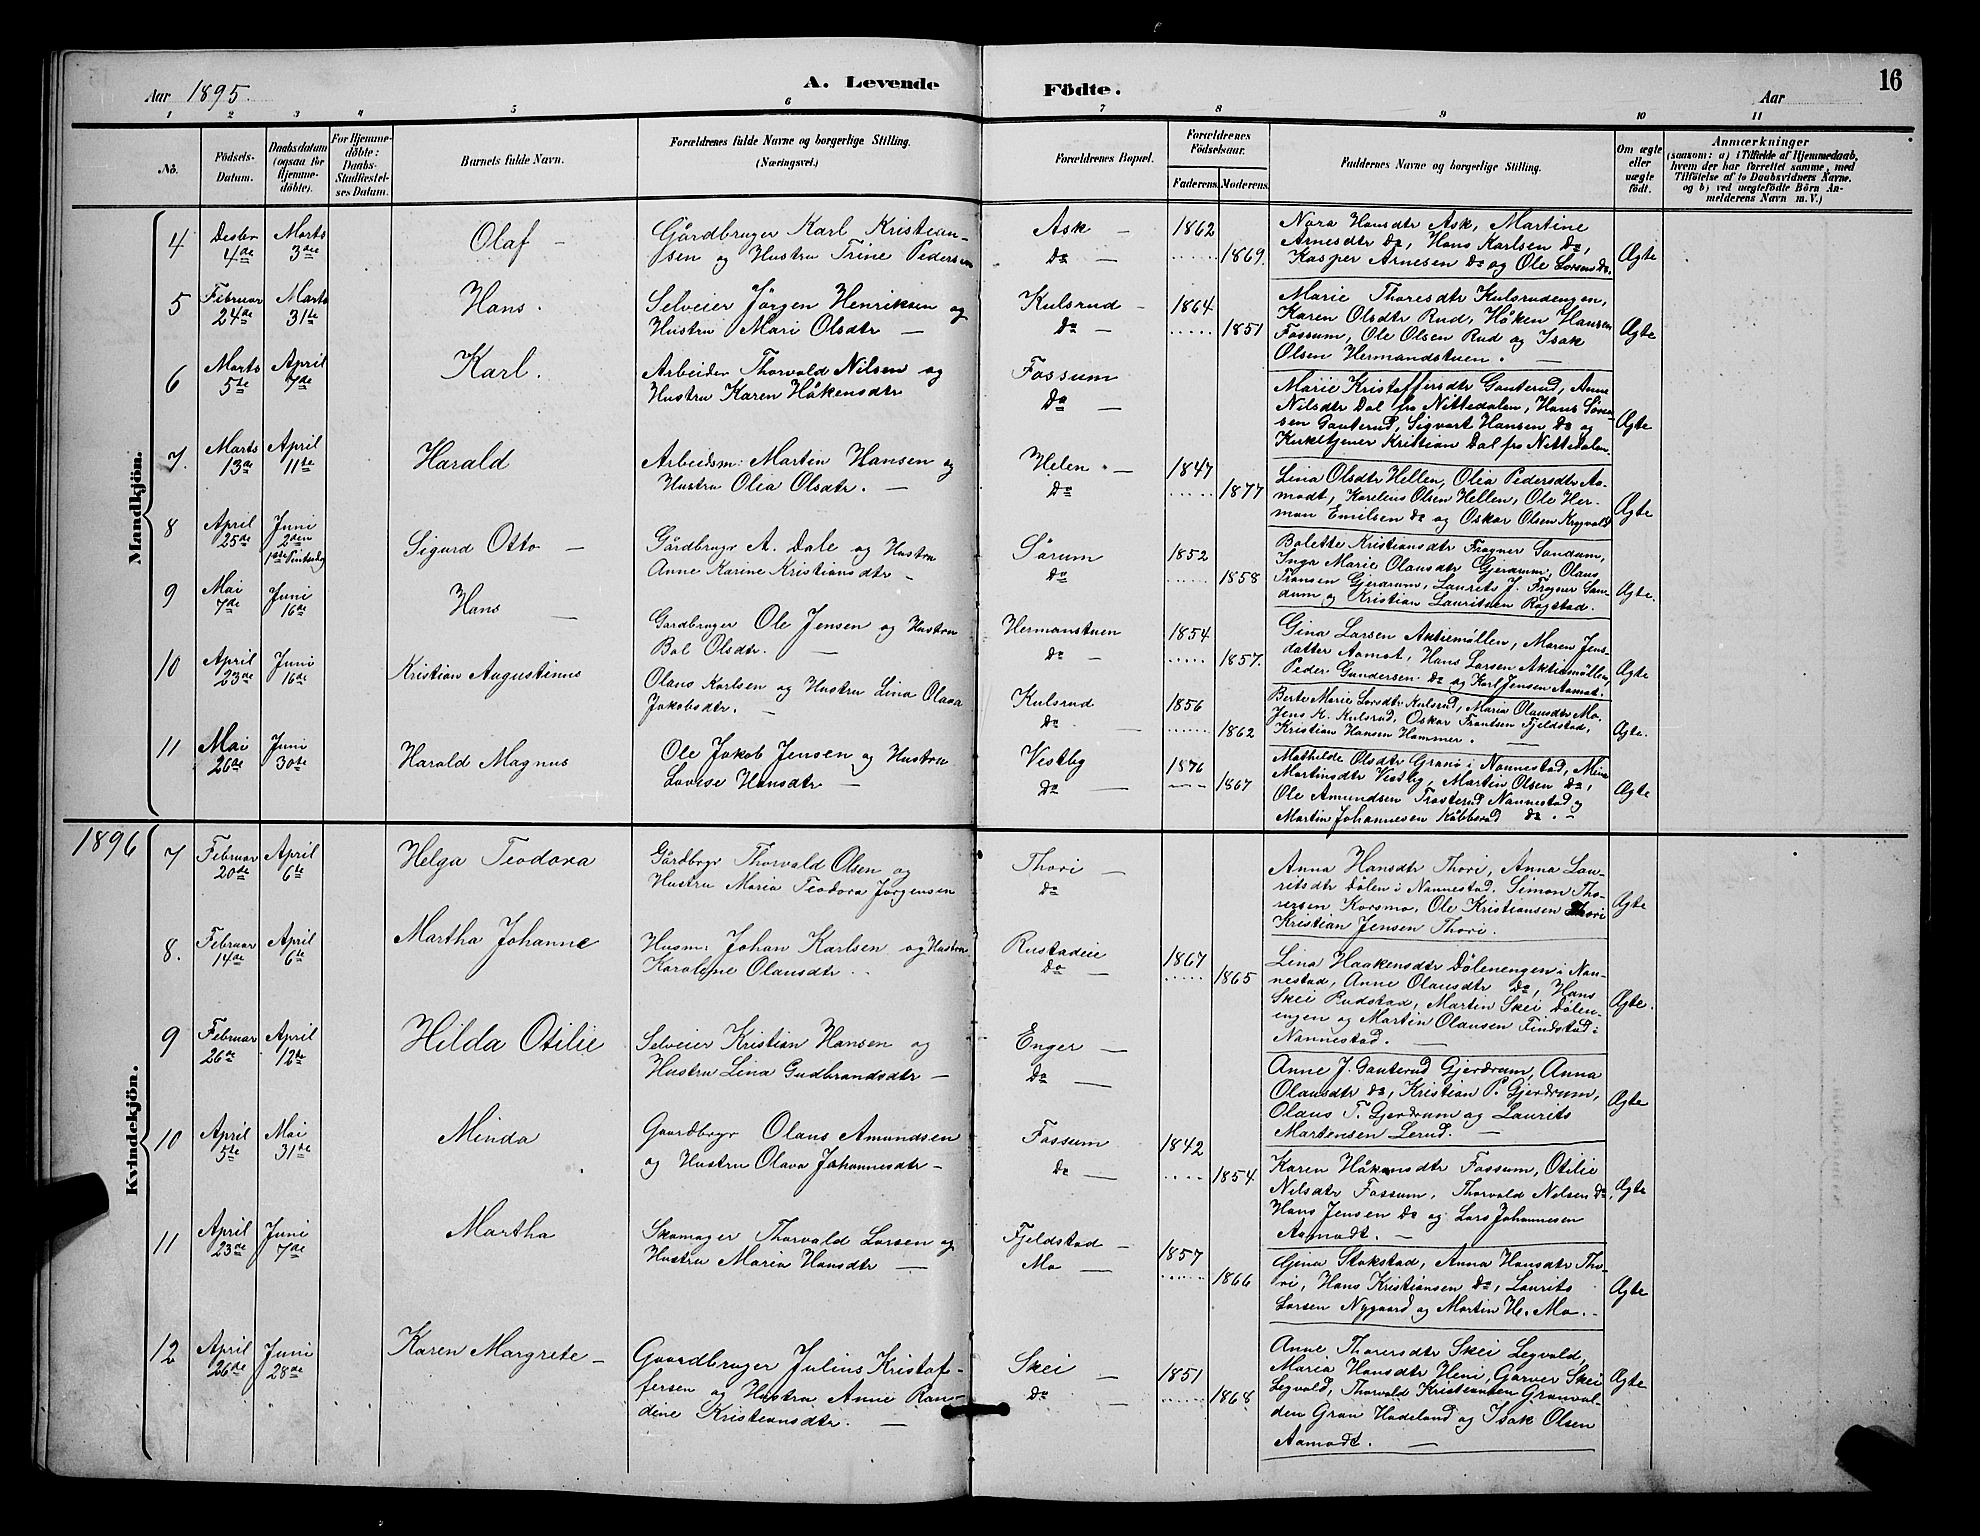 Aar 1895.
A. Levende
Födte.
Aar
16
1 2 3 4 5 6 7 8 9 10 11
No.
Födsels-
Datum.
Daabsdatum
(ogsaa for
Hjemme-
döbte).
For Hjemme-
döbte:
Daabs-
Stadfæstel-
ses Datum.
Barnets fulde Navn.
Forældrenes fulde Navne og borgerlige Stilling.
(Næringsvei.)
Forældrenes Bopæl.
Forældrenes
Födselsaar.
Faderens.
Moderens.
Faddernes Navne og borgerlige Stilling.
Om ægte
eller
uægte
födt.
Anmærkninger
(saasom: a) i Tilfælde af Hjemmedaab,
hvem der har forrettet samme, med
Tilföielse af to Daabsvidners Navne.
og b) ved uægtefödte Börn An-
melderens Navn m. V.)
Mandkjön.
4
Desbr
4de
Marts
3die
Olaf –
Gårdbruger Karl Kristian-
sen og Hustru Trine Pedersen
Ask –
Do –
1862
1869.
Nora Hansdtr Ask, Martine
Arnesdtr Do, Hans Karlsen Do,
Kasper Arnesen Do og Ole Larsen Do.
Ægte
5
Februar
24de
Marts
31te
Hans.
Selveier Jørgen Henriksen og
Hustru Mari Olsdtr –
Kulsrud –
Do –
1864
1851
Marie Thoresdtr Kulsrudengen,
Karen Olsdtr Rud, Håken Hansen
Fossum, Ole Olsen Rud og Isak
Olsen Hermandstuen. –
Ægte
6
Marts
5te
April
7de
Karl.
Arbeider Thorvald Nilsen og
Hustru Karen Håkensdtr
Fossum
Do –
Marie Kristoffersdtr Gauterud, Anne
Nilsdtr Dal fra Nittedalen, Hans Søren-
sen Gauterud, Sigvart Hansen Do og
Kirketjener Kristian Dal fra Nittedalen.
Ægte
7.
Marts
13de
April
11te
Harald
Arbeidsm: Martin Hansen og
Hustru Olea Olsdtr. –
Helen. –
Do
1847
1877
Lina Olsdtr Hellen, Olea Pedersdtr Aa-
modt, Karelius Olsen Hellen, Ole Her-
man Emilsen Do og Oskar Olsen Krogvold
Ægte
8
April
25de
Juni
2den
1ste Pintsedag
Sigurd Otto –
Gårdbrugr A. Dale og Hustru
Anne Karine Kristiansdtr –
Sørum
Do
1852
1858
Bolette Kristiansdtr Frogner Sandum,
Inga Marie Olausdtr Gjerdrum, Olaus
Fransen Gjerdrum, Laurits J. Frogner San-
dum og Kristian Lauritsen Rogstad.
Ægte.
9
Mai
7de
Juni
16de
Hans –
Gårdbruger Ole Jensen og Hustru
Bol Olsdtr. –
Hermanstuen
Do –
1854
1857.
Gina Larsen Aktiemøllen, Maren Jens-
datter Aamot, Hans Larsen Aktiemøllen,
Peder Gundersen Do og Karl Jensen Aamot.
Ægte
10
April
23de
Juni
16de
Kristian Augustinus
Olaus Karlsen og Hustru Lina Olava
Jakobsdtr. –
Kulsrud
Do –
1856
1862
Berte Marie Larsdtr Kulsrud, Maria Olausdtr Mo,
Jens K. Kulsrud, Oskar Frantsen Fjeldstad,
Kristian Hansen Hammer. –
Ægte.
11
Mai
26de
Juni
30te
Harald Magnus
Ole Jakob Jensen og Hustru
Lovise Hansdtr –
Vestby
Do –
1876
1867
Mathilde Olsdtr Gran i Nannestad, Mina
Martinsdtr Vestby, Martin Olsen Do,
Ole Amundsen Trøsterud Nannestad og
Martin Johannesen Kåbberød Do. –
Ægte
1896
Kvindekjön.
7
Februar
20de
April
6te
Helga Teodora
Gårdbrgr Thorvald Olsen og
Hustru Maria Teodora Jørgensen
Thori –
Do
Anna Hansdtr Thori, Anna Lau-
ritsdtr Dølen i Nannestad, Simon Tho-
resen Korsmo, Ole Kristiansen Thori
Kristian Jensen Thori.
Ægte
8.
Februar
14de
April
6te
Martha Johanne
Husm: Johan Karlsen og Hustru
Karoline Olausdtr. –
Rustadeie
Do –
1867
1865
Lina Haakensdtr Dølenengen i Nan-
nestad, Anne Olausdtr Do, Hans
Skei Rudstad, Martin Skei Dølen-
engen og Martin Olausen Findstad i
Nannestad. –
Ægte.
9
Februar
26de
April
12te
Hilda Otilie
Selveier Kristian Hansen og
Hustru Lina Gudbrandsdtr –
Enger –
Do –
Anne J. Gauterud Gjerdrum, Anna
Olausdtr Do, Kristian P. Gjerdrum,
Olaus T. Gjerdrum og Laurits
Martensen Lerud. –
Ægte
10
April
5te
Mai
31te
Minda
Gaardbrgr Olaus Amundsen
og Hustru Olava Johannesdtr –
Fossum
Do –
1842
1854
Karen Håkensdtr Fossum, Otilie
Nilsdtr Fossum, Thorvald Nilsen Do
Hans Jensen Do og Lars Johannesen
Aamodt. –
Ægte
11
April
23de
Juni
7de
Martha
Skomager Thorvald Larsen og
Hustru Maria Hansdtr –
Fjeldstad –
Mo –
1857
1866
Gina Stokstad, Anna Hansdtr Tho-
ri, Hans Kristiansen Do, Laurits
Larsen Nygaard og Martin H. Mo. –
Ægte
12
April
26de
Juni
28de
Karen Margrete –
Gaardbruger Julius Kristof-
fersen og Hustru Anne Ran-
dine Kristiansdtr. –
Skei –
Do –
1851
1868
Anne Thorersdtr Skei Legvold,
Maria Hansdtr Heni, Garver Skei
Legvold, Thorvald Kristiansen Granvol-
den Gran Hadeland og Isak Olsen
Aamodt. –
Ægte